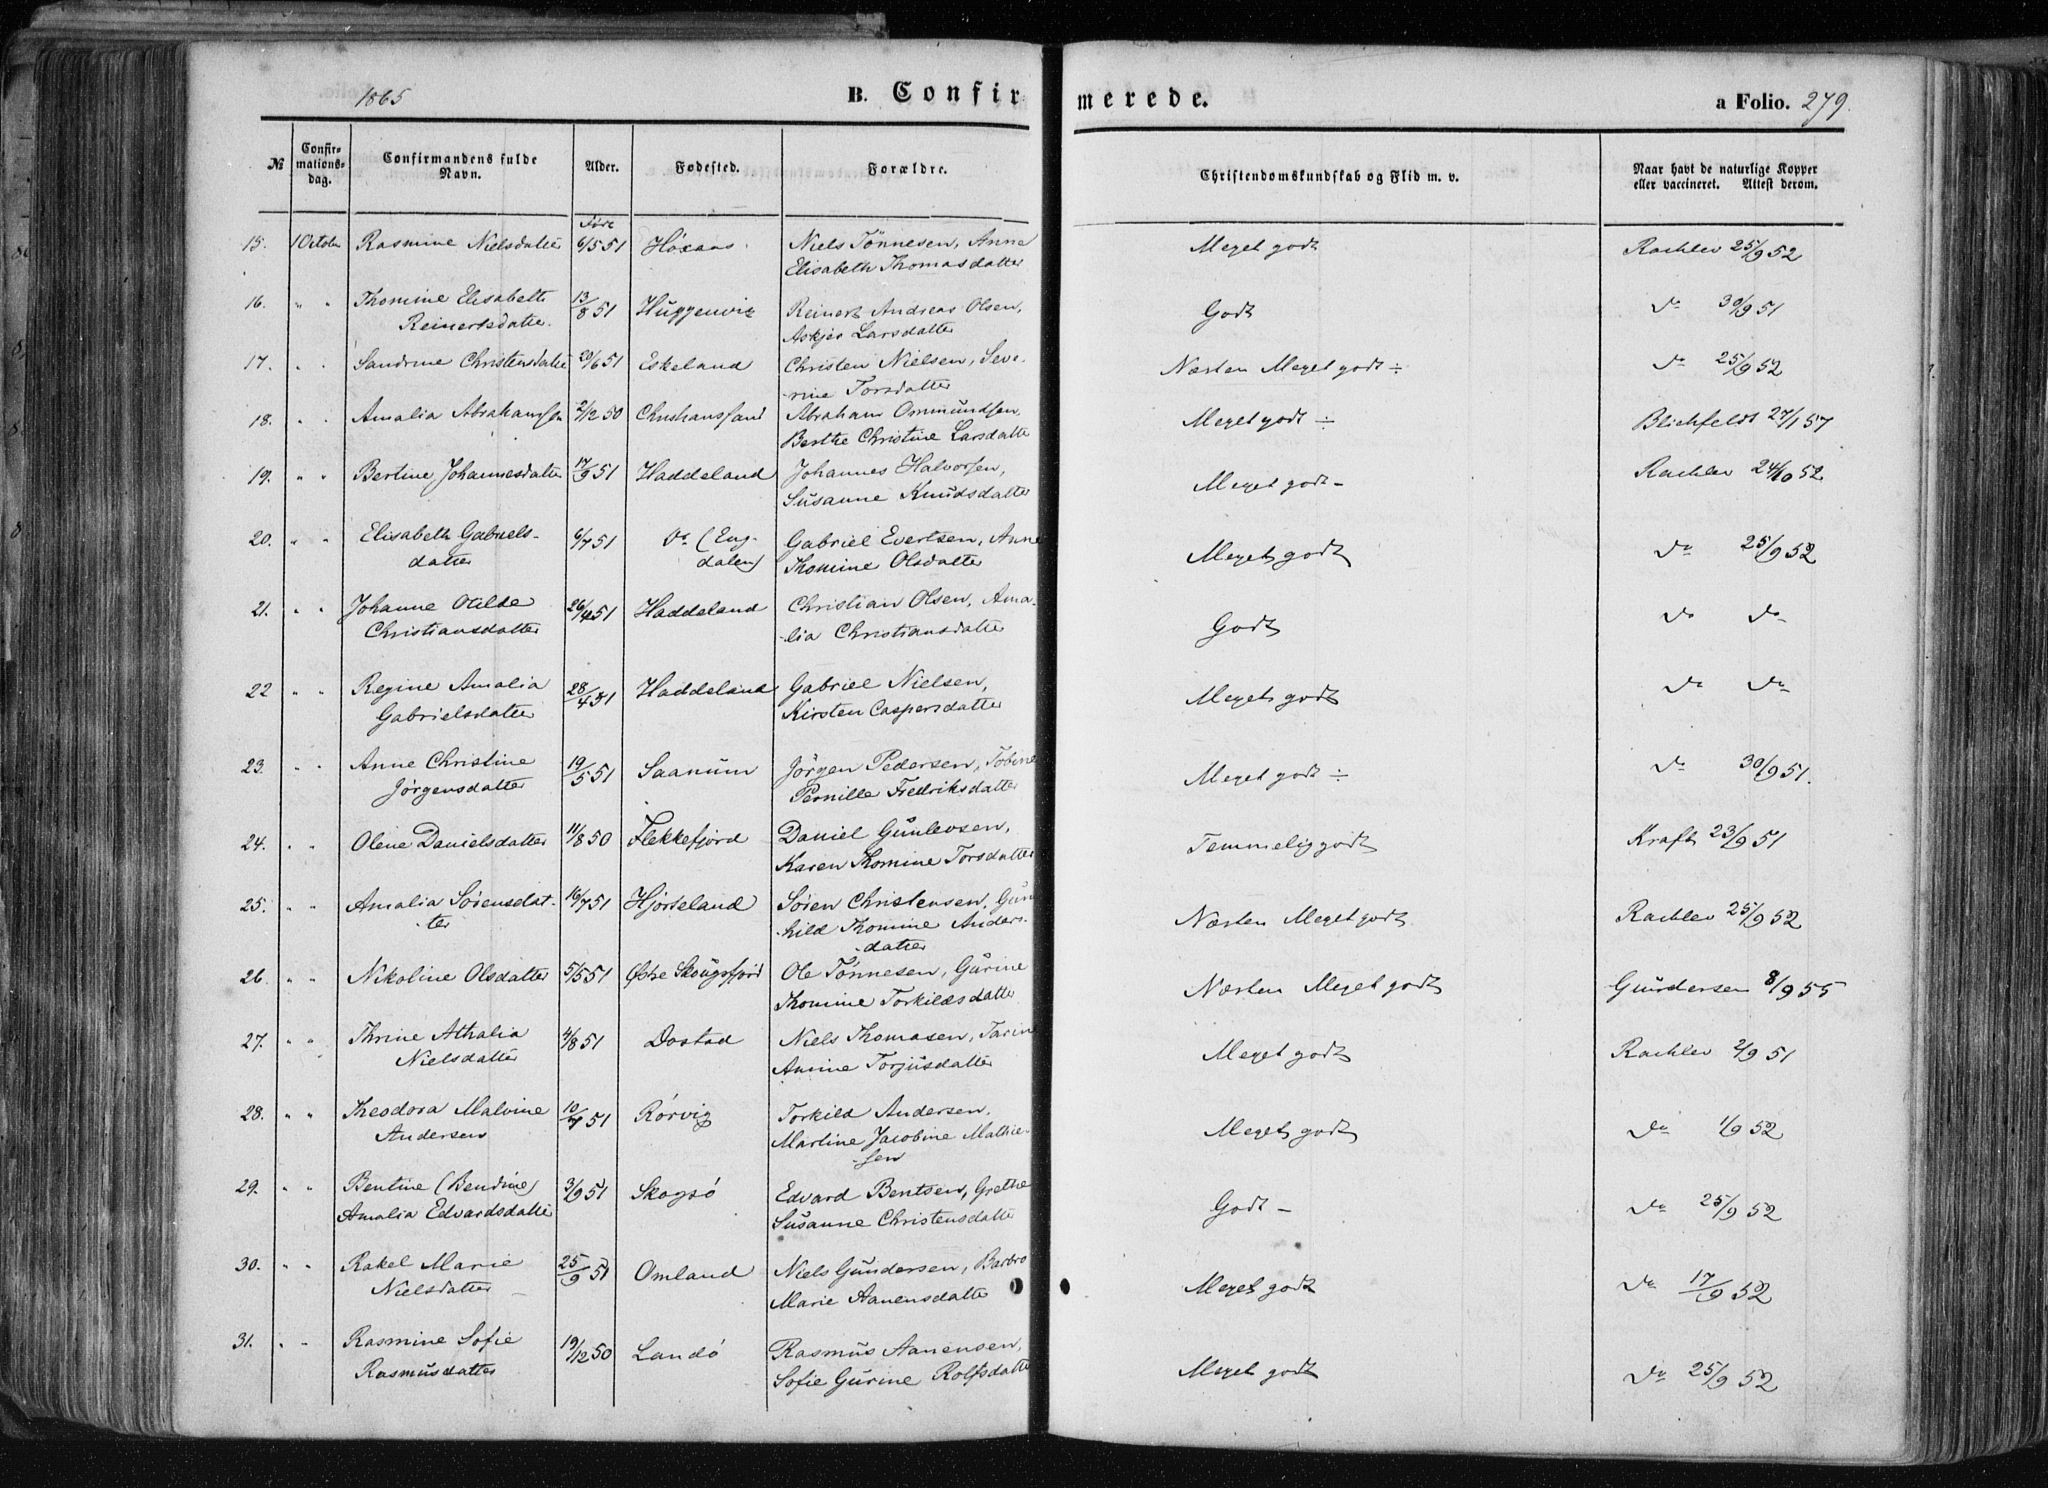 1865 B. Confirmerede. a Folio. 279.
№ Confirmationsdag. Confirmandens fulde Navn. Alder. Fødested. Forældre. Christendomskundskab og Flid m. v. Naar havt de naturlige Kopper eller vaccineret. Attest derom.
Føre
15. 1 October Rasmine Nielsdatter 6/5 51 Niels Tönnesen, Anna Meget godt Rachlev 25/9 52
Elisabeth Thomasdatter
16. " " Thomine Elisabeth 13/8 51 Huggenvig Reinert Andreas Olsen, Godt do 30/9 51
Reinertsdatter. Askjer Larsdatter
17. " " Sandrine Christensdatter 20/6 51 Eskeland Christen Nielsen, Seve- Næsten Meget godt ÷ do 25/9 52
rine Torsdatter
18. " " Amalia Abrahamsen 2/12 50 Christiansand Abraham Ommundsen, Meget godt ÷ Blichfeldt 27/1 57
Berthe Christine Larsdatter
19. " " Bertine Johannesdatter 17/9 51 Haddeland Johannes Halvorsen, Meget godt - Rachlev 24/10 52
Susanne Knudsdatter
20. " " Elisabeth Gabriels- 6/7 51 do (Eng- Gabriel Evertsen, Anne Meget godt do 25/9 52
datter dalen) Thomine Olsdatter
21. " " Johanne Otilde 26/4 51 Haddeland Christian Olsen, Ama- Godt do do
Christiansdatter lia Christiansdatter
22 " " Regine Amalia 28/4 51 Haddeland Gabriel Nielsen, Meget godt do do
Gabrielsdatter Kirsten Caspersdatter
23. " " Anne Christine 19/5 51 Saanum Jörgen Pedersen, Tobine Meget godt ÷ do 30/9 51.
Jörgensdatter Pernille Fredriksdatter
24. " " Olene Danielsdatter 11/8 50 Flekkefjord Daniel Gunlevsen, Temmelig godt Kraft 23/9 51
Karen Thomine Torsdatter
25. " " Amalia Sörensdat- 16/7 51 Hjorteland Sören Christensen, Gun Næsten Meget godt Rachlev 25/9 52
ter hild Thomine Anders-
datter
26. " " Nikoline Olsdatter 5/5 51 Østre Skougsfjord Ole Tönnesen, Gurine Næsten Meget godt Gundersen 8/9 55
Thomine Torkildsdatter
27. " " Thrine Athalia 4/8 51 Dostad Niels Thomasen, Tarine Meget godt Rachlev 2/9 51
Nielsdatter Amine Torjusdatter
28. " " Theodora Malvine 10/7 51 Rörvig Torkild Andersen, Meget godt do 1/9 52
Andersen Martine Jacobine Mathie-
sen
29. " " Bentine (Bendine) 3/9 51 Skogsö Edvard Bentsen, Grethe Godt - do 25/9 52
Amalia Edvardsdatter Susanne Christensdatter
30. " " Rakel Marie 25/9 51 Omland Niels Gundersen, Barbro Meget godt do 17/9 52
Nielsdatter Marie Aanensdatter
31. " " Rasmine Sofie 19/12 50 Landö Rasmus Aanensen, Meget godt do 25/9 52
Rasmusdatter Sofie Gurine Rolfsdatter